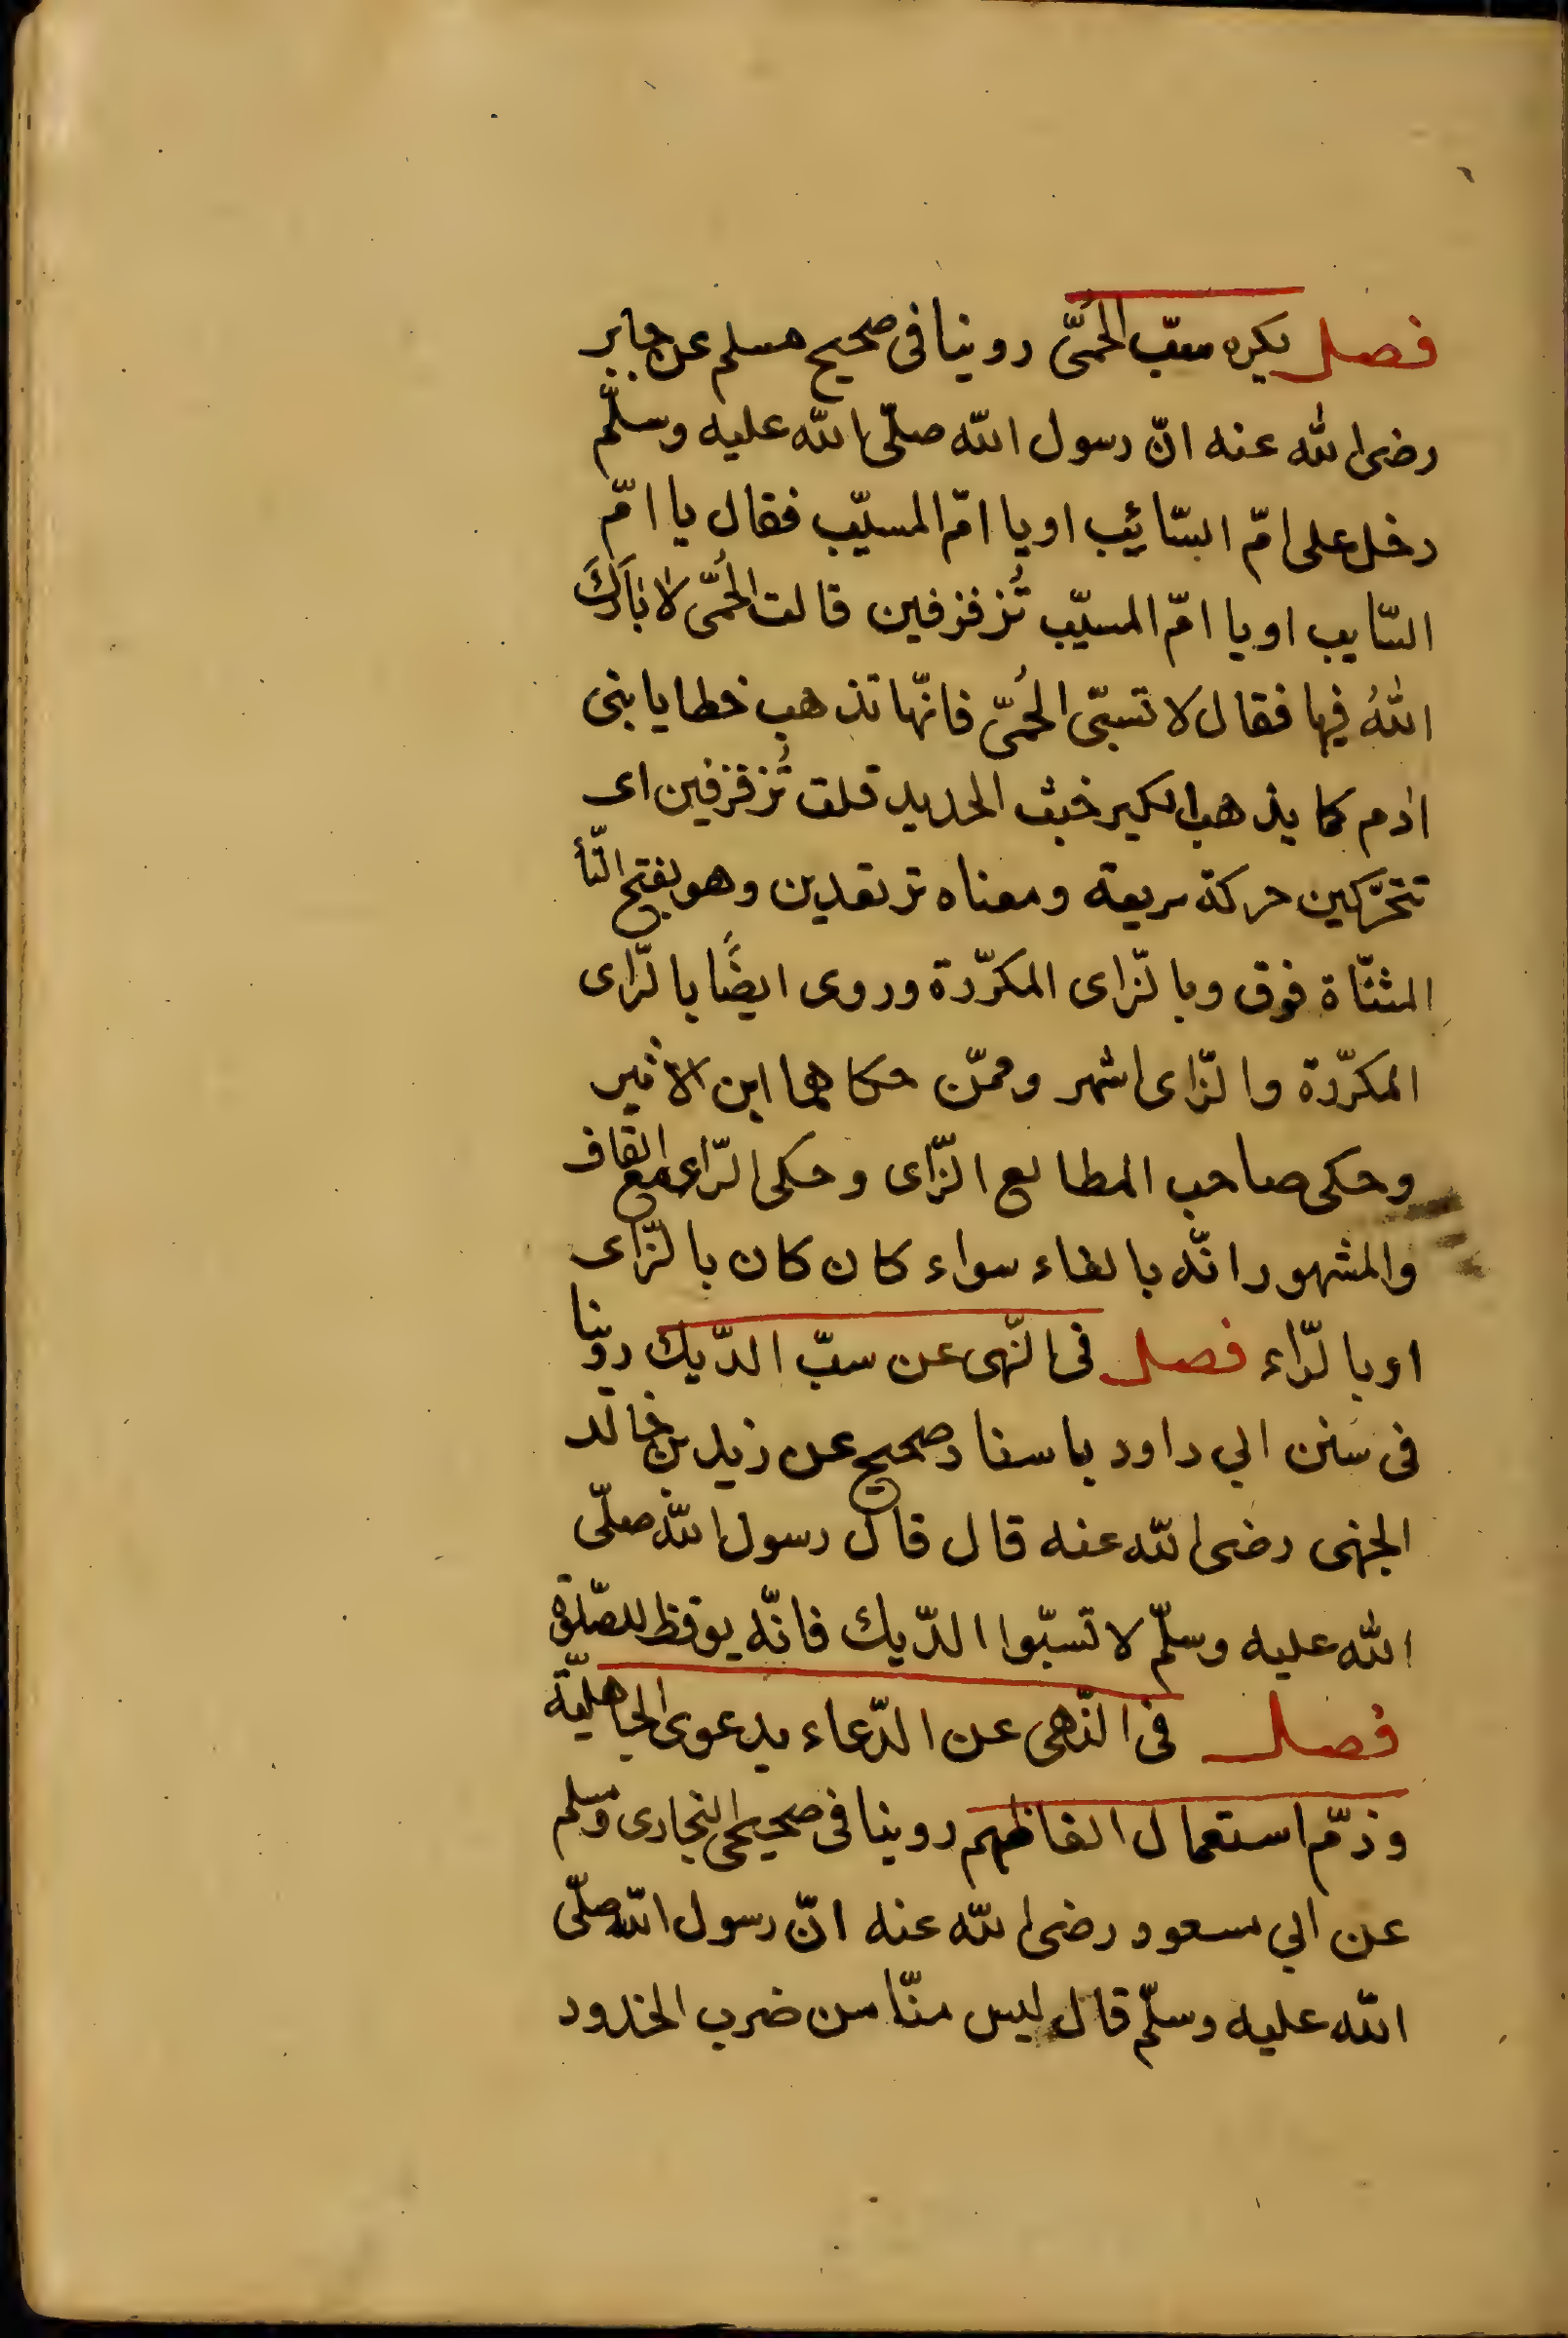 فصل يكره سبّ الحُمّى روينا فى صحيح مسلم عن جابر
رضى الله عنه انّ رسول الله صلّى الله عليه وسلّم
دخل على امّ السّائِب او يا امّ المسيّب فقال يا امّ
السّايب او يا امّ المسيّب تُزفزفين قالت الحُمّى لا بَارَكَ
اللهُ فيها فقال لا تسبّى الحُمّى فانّها تذهب خطايا بنى
ادم كما يذهب الكير خبث الحديد قلت تُزفزفين اى
تتحرّكين حركة سريعة ومعناه ترتعدين وهو بفتح التّأ
المثنّاة فوق وبالزّاى المكرّرة وروى ايضًا بالرّاى
المكرّرة والزّاى اشهر وممّن حكاهما ابن الاثير
وحكى صاحب المطالع الزّاى وحكى الرّاى مع القاف
والمشهور انّه بالفاء سواء كان كان بالزّاى
او بالرّاء فصل فى النّهى عن سبّ الدّيك روينا
فى سنن ابي داود باسناد صحيح عن زيد بن خالد
الجهنى رضى الله عنه قال قال رسول الله صلّى
الله عليه وسلّم لا تسبّوا الدّيك فانّه يوقظ للصّلوة
فصل فى النّهى عن الدّعاء بدعوى الجاهليّة
وذمّ استعمال الفاظهم روينا فى صحيحى البخارى ومسلم
عن ابي مسعود رضى الله عنه انّ رسول الله صلّى
الله عليه وسلّم قال ليس منّا من ضرب الخدود